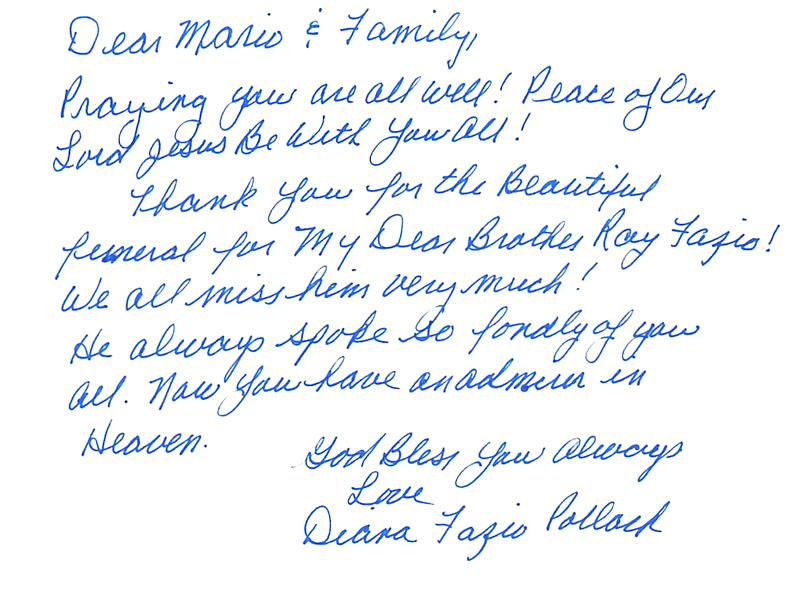 Dear Mario & Family,
Praying you are all well! Peace of Our
Lord Jesus Be With You All!
Thank You for the Beautiful
funeral for My Dear Brother Ray Fazio!
We all miss him very much!
He always spoke so fondly of you
all. Now You have an admirer in
Heaven.
God Bless You Always
Love
Diana Fazio Pollack